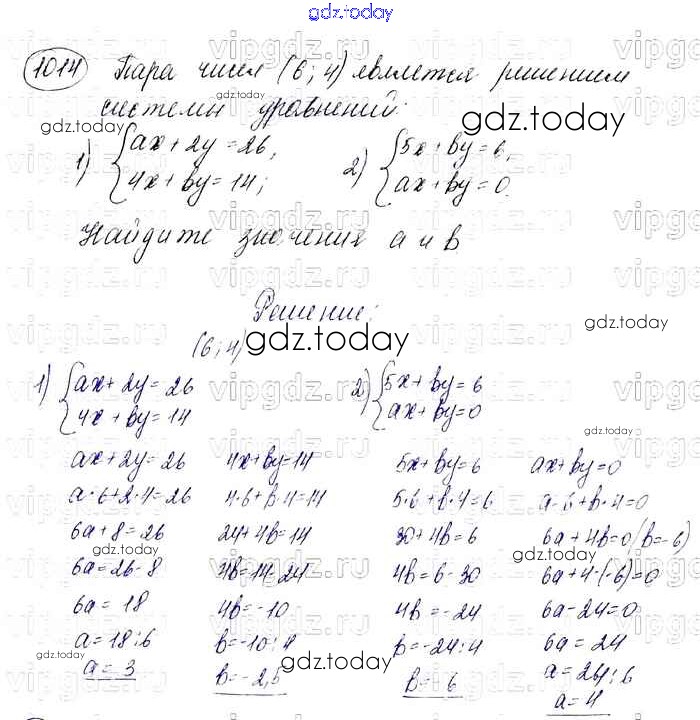 gdz.today
1014 Пара чисел (6; 4) является решением
системы уравнений:
gdz.today
gdz.today
1) {ax + 2y = 26,
4x + by = 14;
2) {5x + by = 6,
ax + by = 0.
Найдите значения a и b
Решение:
gdz.today
(6; 4) gdz.today
1) {ax + 2y = 26
4x + by = 14
2) {5x + by = 6
ax + by = 0
ax + 2y = 26
a·6 + 2·4 = 26
6a + 8 = 26
gdz.today
6a = 26 - 8
6a = 18
a = 18:6
gdz.today
a = 3
4x + by = 14
4·6 + b·4 = 14
24 + 4b = 14
4b = 14 - 24
4b = -10
b = -10:4
b = -2,5
gdz.today
5x + by = 6
5·6 + b·4 = 6
30 + 4b = 6
4b = 6 - 30
4b = -24
b = -24:4
b = -6
ax + by = 0
a·6 + b·4 = 0
6a + 4b = 0 (b = -6)
gdz.today
6a + 4·(-6) = 0
6a - 24 = 0
6a = 24
a = 24:6
a = 4
gdz.today
vipgdz.ru